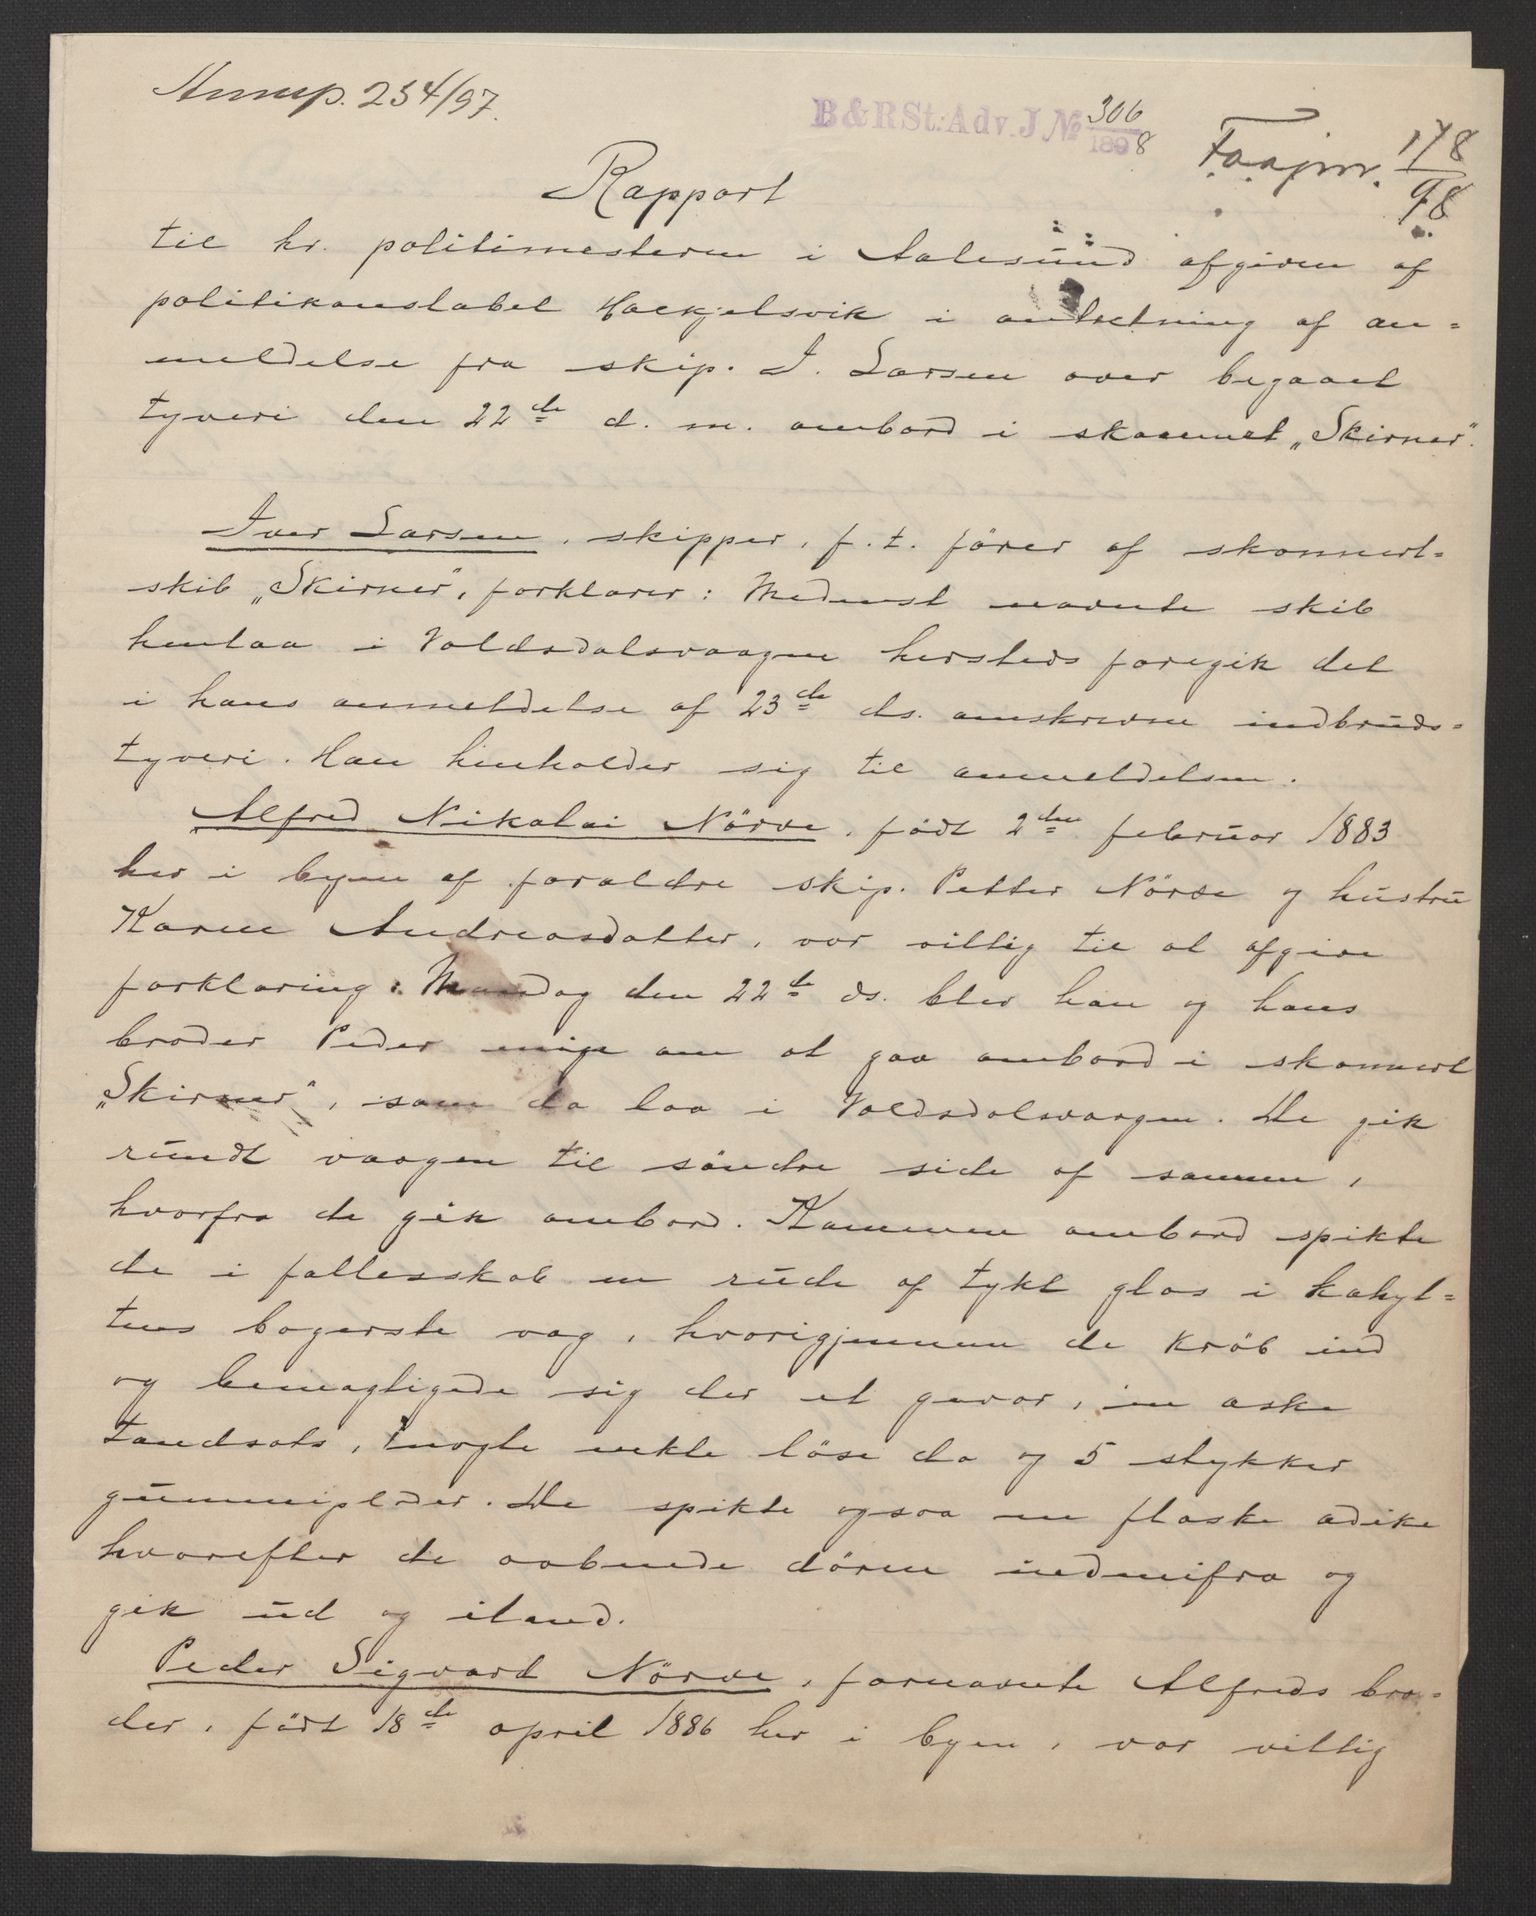 Anmp. 254/97.
B & R St: Adv. J № 306/1898
178/98
Rapport
til hr. politimesteren i Aalesund afgiven af
politikonstabel Hoekjelsvik i andledning af an=
meldelse fra skip. I. Larsen over begaaet
tyveri den 22de d. m. ombord i skonnert „Skirner".
Iver Larsen, skipper, f. t. fører af skonnert=
skib „Skirner", forklarer: Medenst nævnte skib
henlaa i Voldsdalsvaagen hersteds foregik det
i hans anmeldelse af 23de ds. omskrevne indbruds=
tyveri. Han henholder sig til anmeldelsen.
Alfred Nikolai Nörve, født 2den februar 1883
her i byen af forældre skip. Petter Nörve og hustru
Karen Andreasdatter, var villig til at afgive
forklaring: Mandag den 22de ds. blev han og hans
broder Peder enige om at gaa ombord i skonnert
„Skirner", som da laa i Voldsdalsvaagen. De gik
rundt vaagen til söndre side af samme,
hvorfra de gik ombord. Kommen ombord spikte
de i fællesskab en rude af tykt glas i kahyt=
tens bagerste væg, hvorigjennem de kröb ind
og bemægtigede sig der et gevær, en æske
tændsats, nogle enkle löse do og 5 stykker
gummiplader. De spikte ogsaa en flaske ædike
hvorefter de aabnede dören indenifra og
gik ud og iland.
Peder Sigvard Nörve, fornævnte Alfreds bro=
der, født 18de april 1886 her i byen, var villig